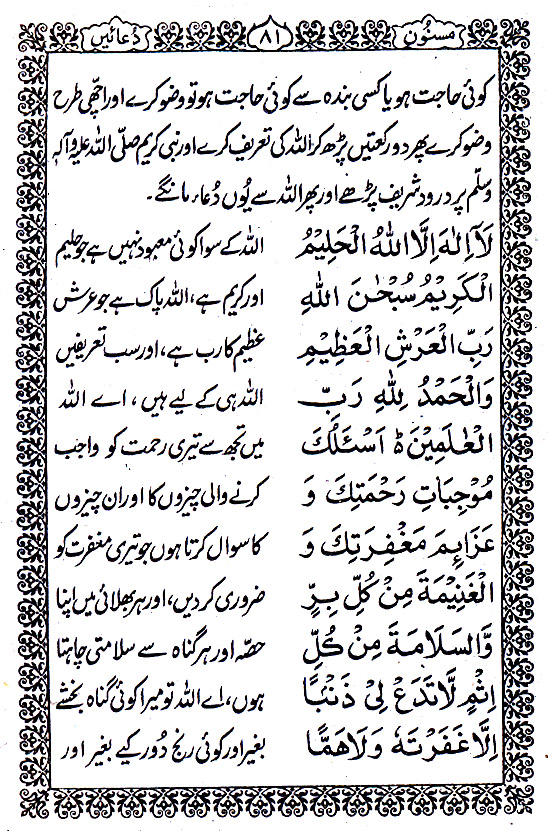 مسنون ۸۱ دعائیں
کوئی حاجت ہو یا کسی بندہ سے کوئی حاجت ہو تو وضو کرے اور اچھی طرح
وضو کرے پھر دو رکعتیں پڑھ کر اللہ کی تعریف کرے اور نبی کریم صلّی اللہ علیہ وآلہٖ
وسلّم پر درود شریف پڑھے اور پھر اللہ سے یُوں دُعاء مانگے۔
لَآ اِلٰهَ اِلَّا اللهُ الْحَلِيْمُ
الْكَرِيْمُ سُبْحٰنَ اللهِ
رَبِّ الْعَرْشِ الْعَظِيْمِ
وَالْحَمْدُ لِلّٰهِ رَبِّ
الْعٰلَمِيْنَ ط اَسْئَلُكَ
مُوْجِبَاتِ رَحْمَتِكَ وَ
عَزَآئِمَ مَغْفِرَتِكَ وَ
الْغَنِيْمَةَ مِنْ كُلِّ بِرٍّ
وَّالسَّلَامَةَ مِنْ كُلِّ
اِثْمٍ لَّا تَدَعْ لِيْ ذَنْۢبًا
اِلَّا غَفَرْتَهٗ وَلَا هَمًّا
اللہ کے سوا کوئی معبود نہیں ہے جو حلیم
اور کریم ہے، اللہ پاک ہے جو عرش
عظیم کا رب ہے، اور سب تعریفیں
اللہ ہی کے لیے ہیں، اے اللہ
میں تجھ سے تیری رحمت کو واجب
کرنے والی چیزوں کا اور ان چیزوں
کا سوال کرتا ہوں جو تیری مغفرت کو
ضروری کر دیں، اور ہر بھلائی میں اپنا
حصّہ اور ہر گناہ سے سلامتی چاہتا
ہوں، اے اللہ تو میرا کوئی گناہ بخشے
بغیر اور کوئی رنج دُور کیے بغیر اور